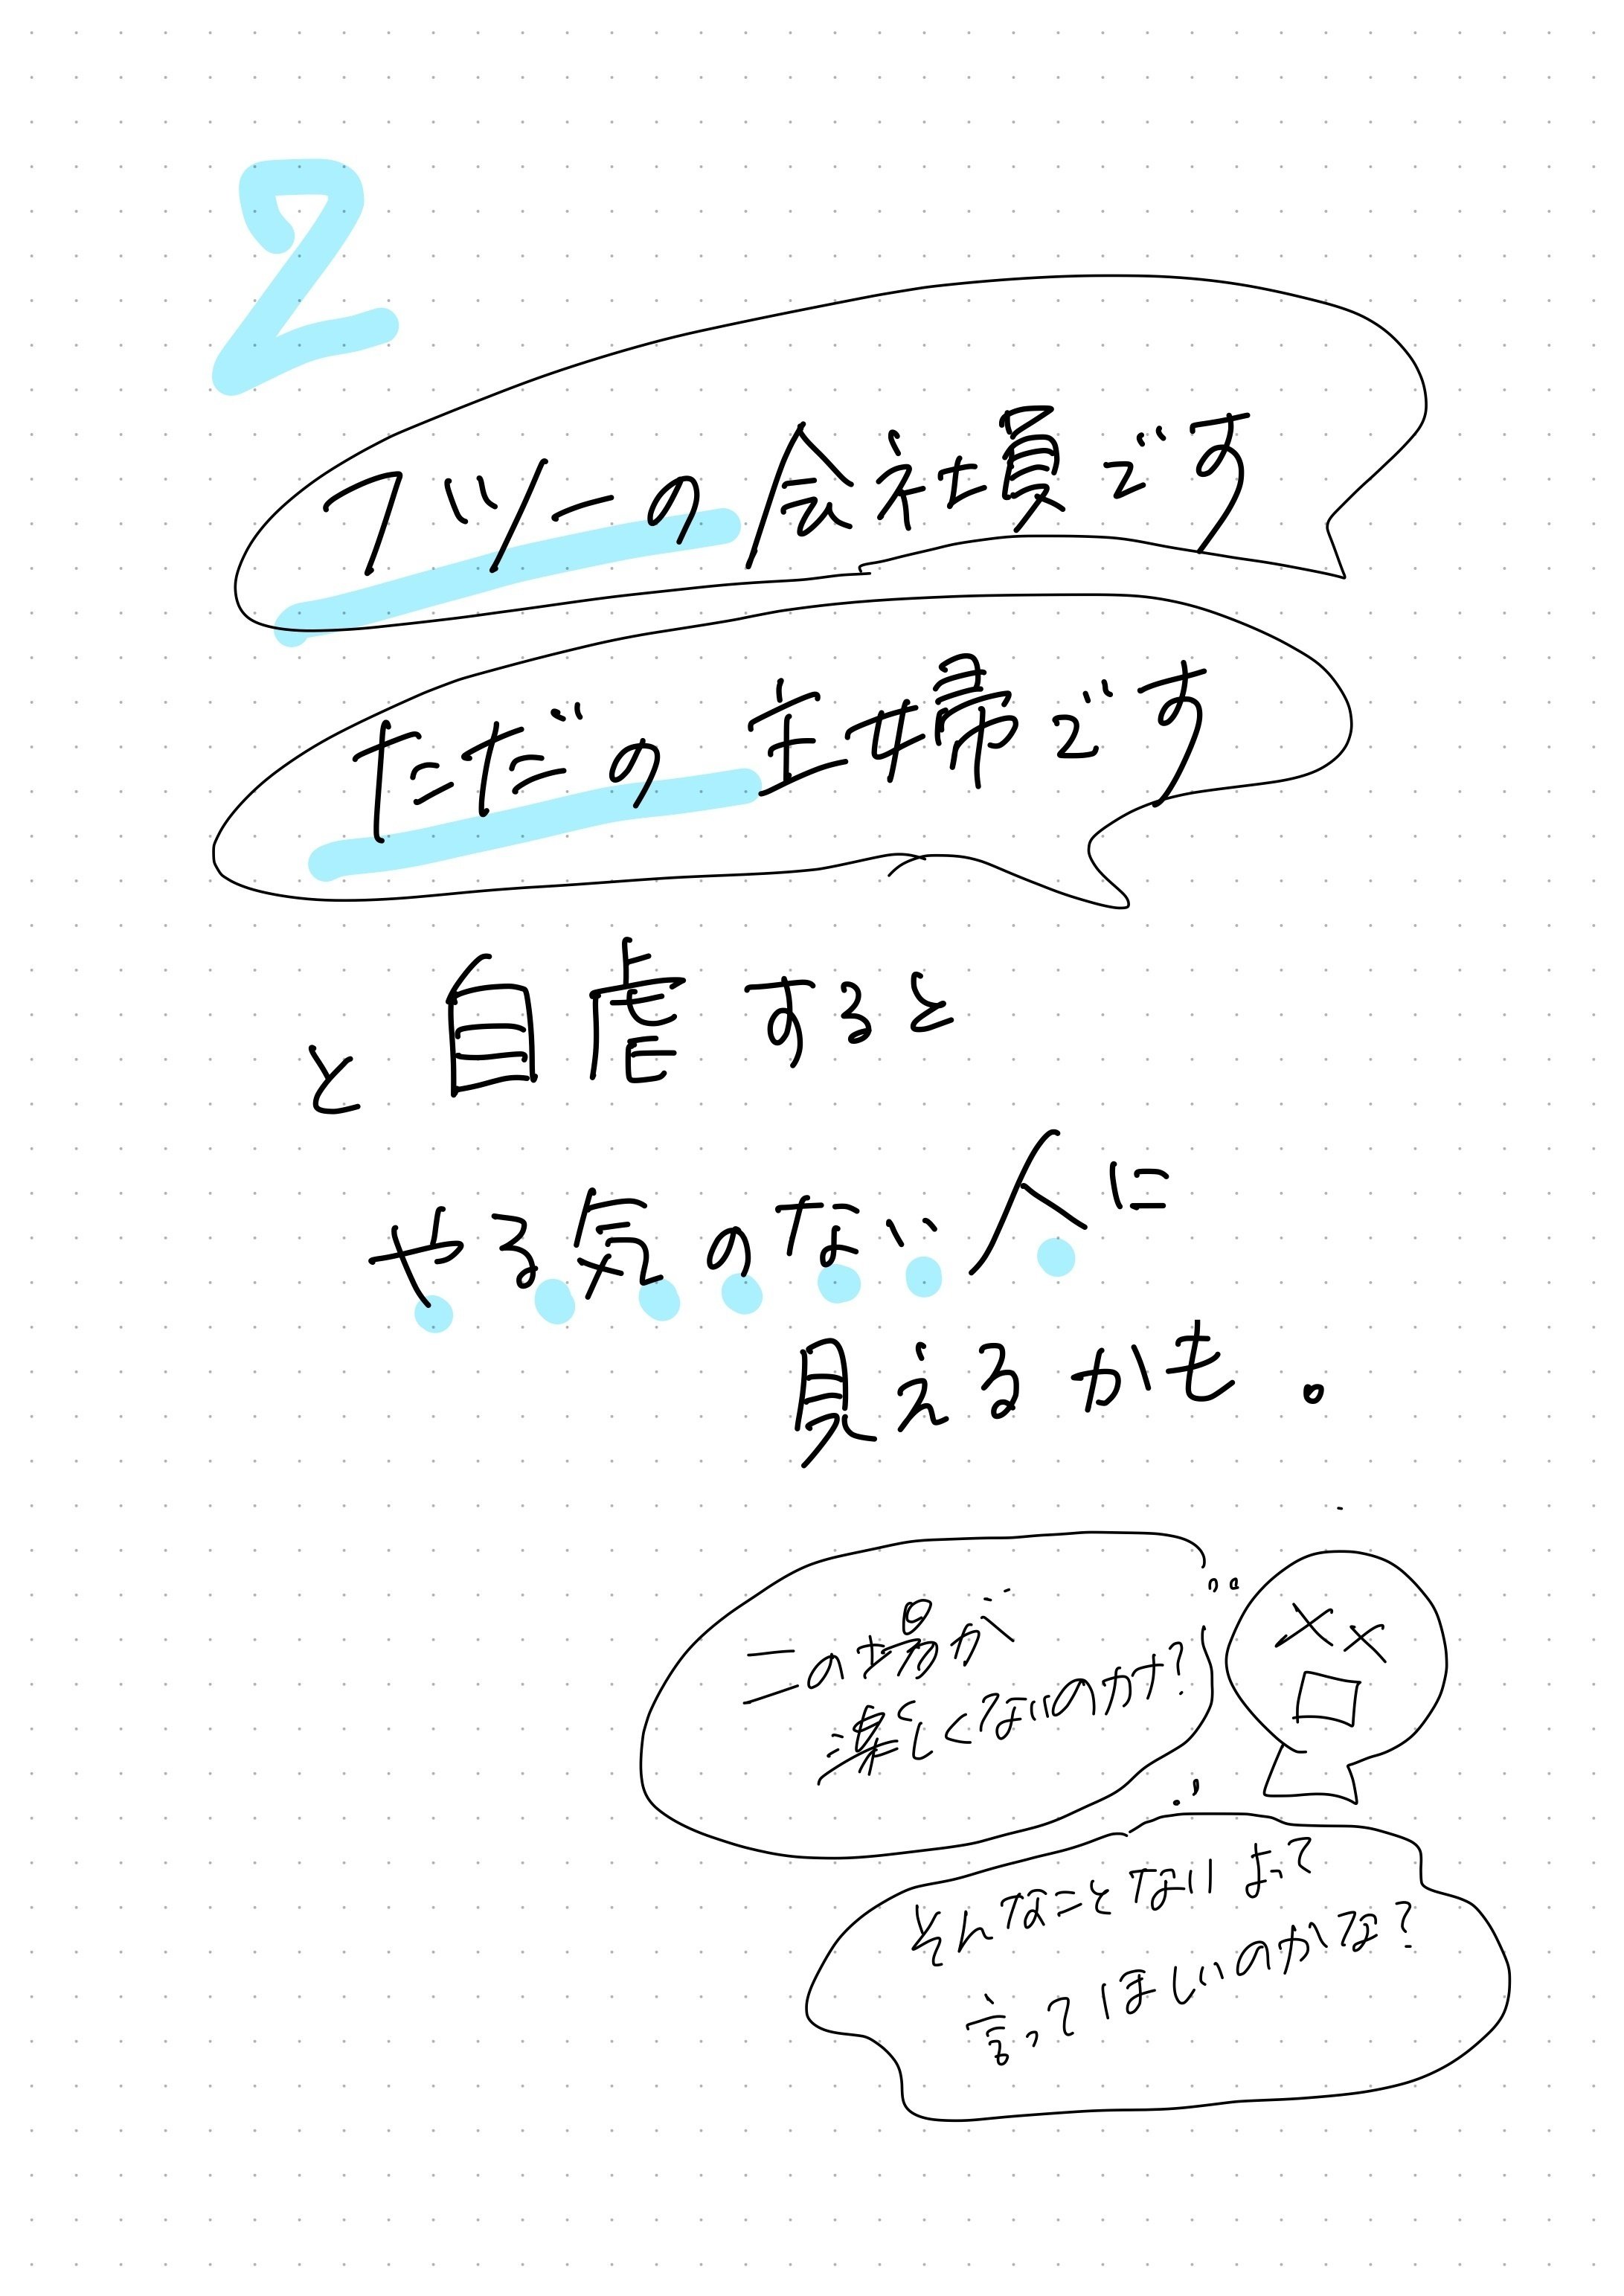 2
フツーの会社員です
ただの主婦です
と自虐すると
やる気のない人に
見えるかも。
この場が
楽しくないのかな?
そんなことないよって
言ってほしいのかな?